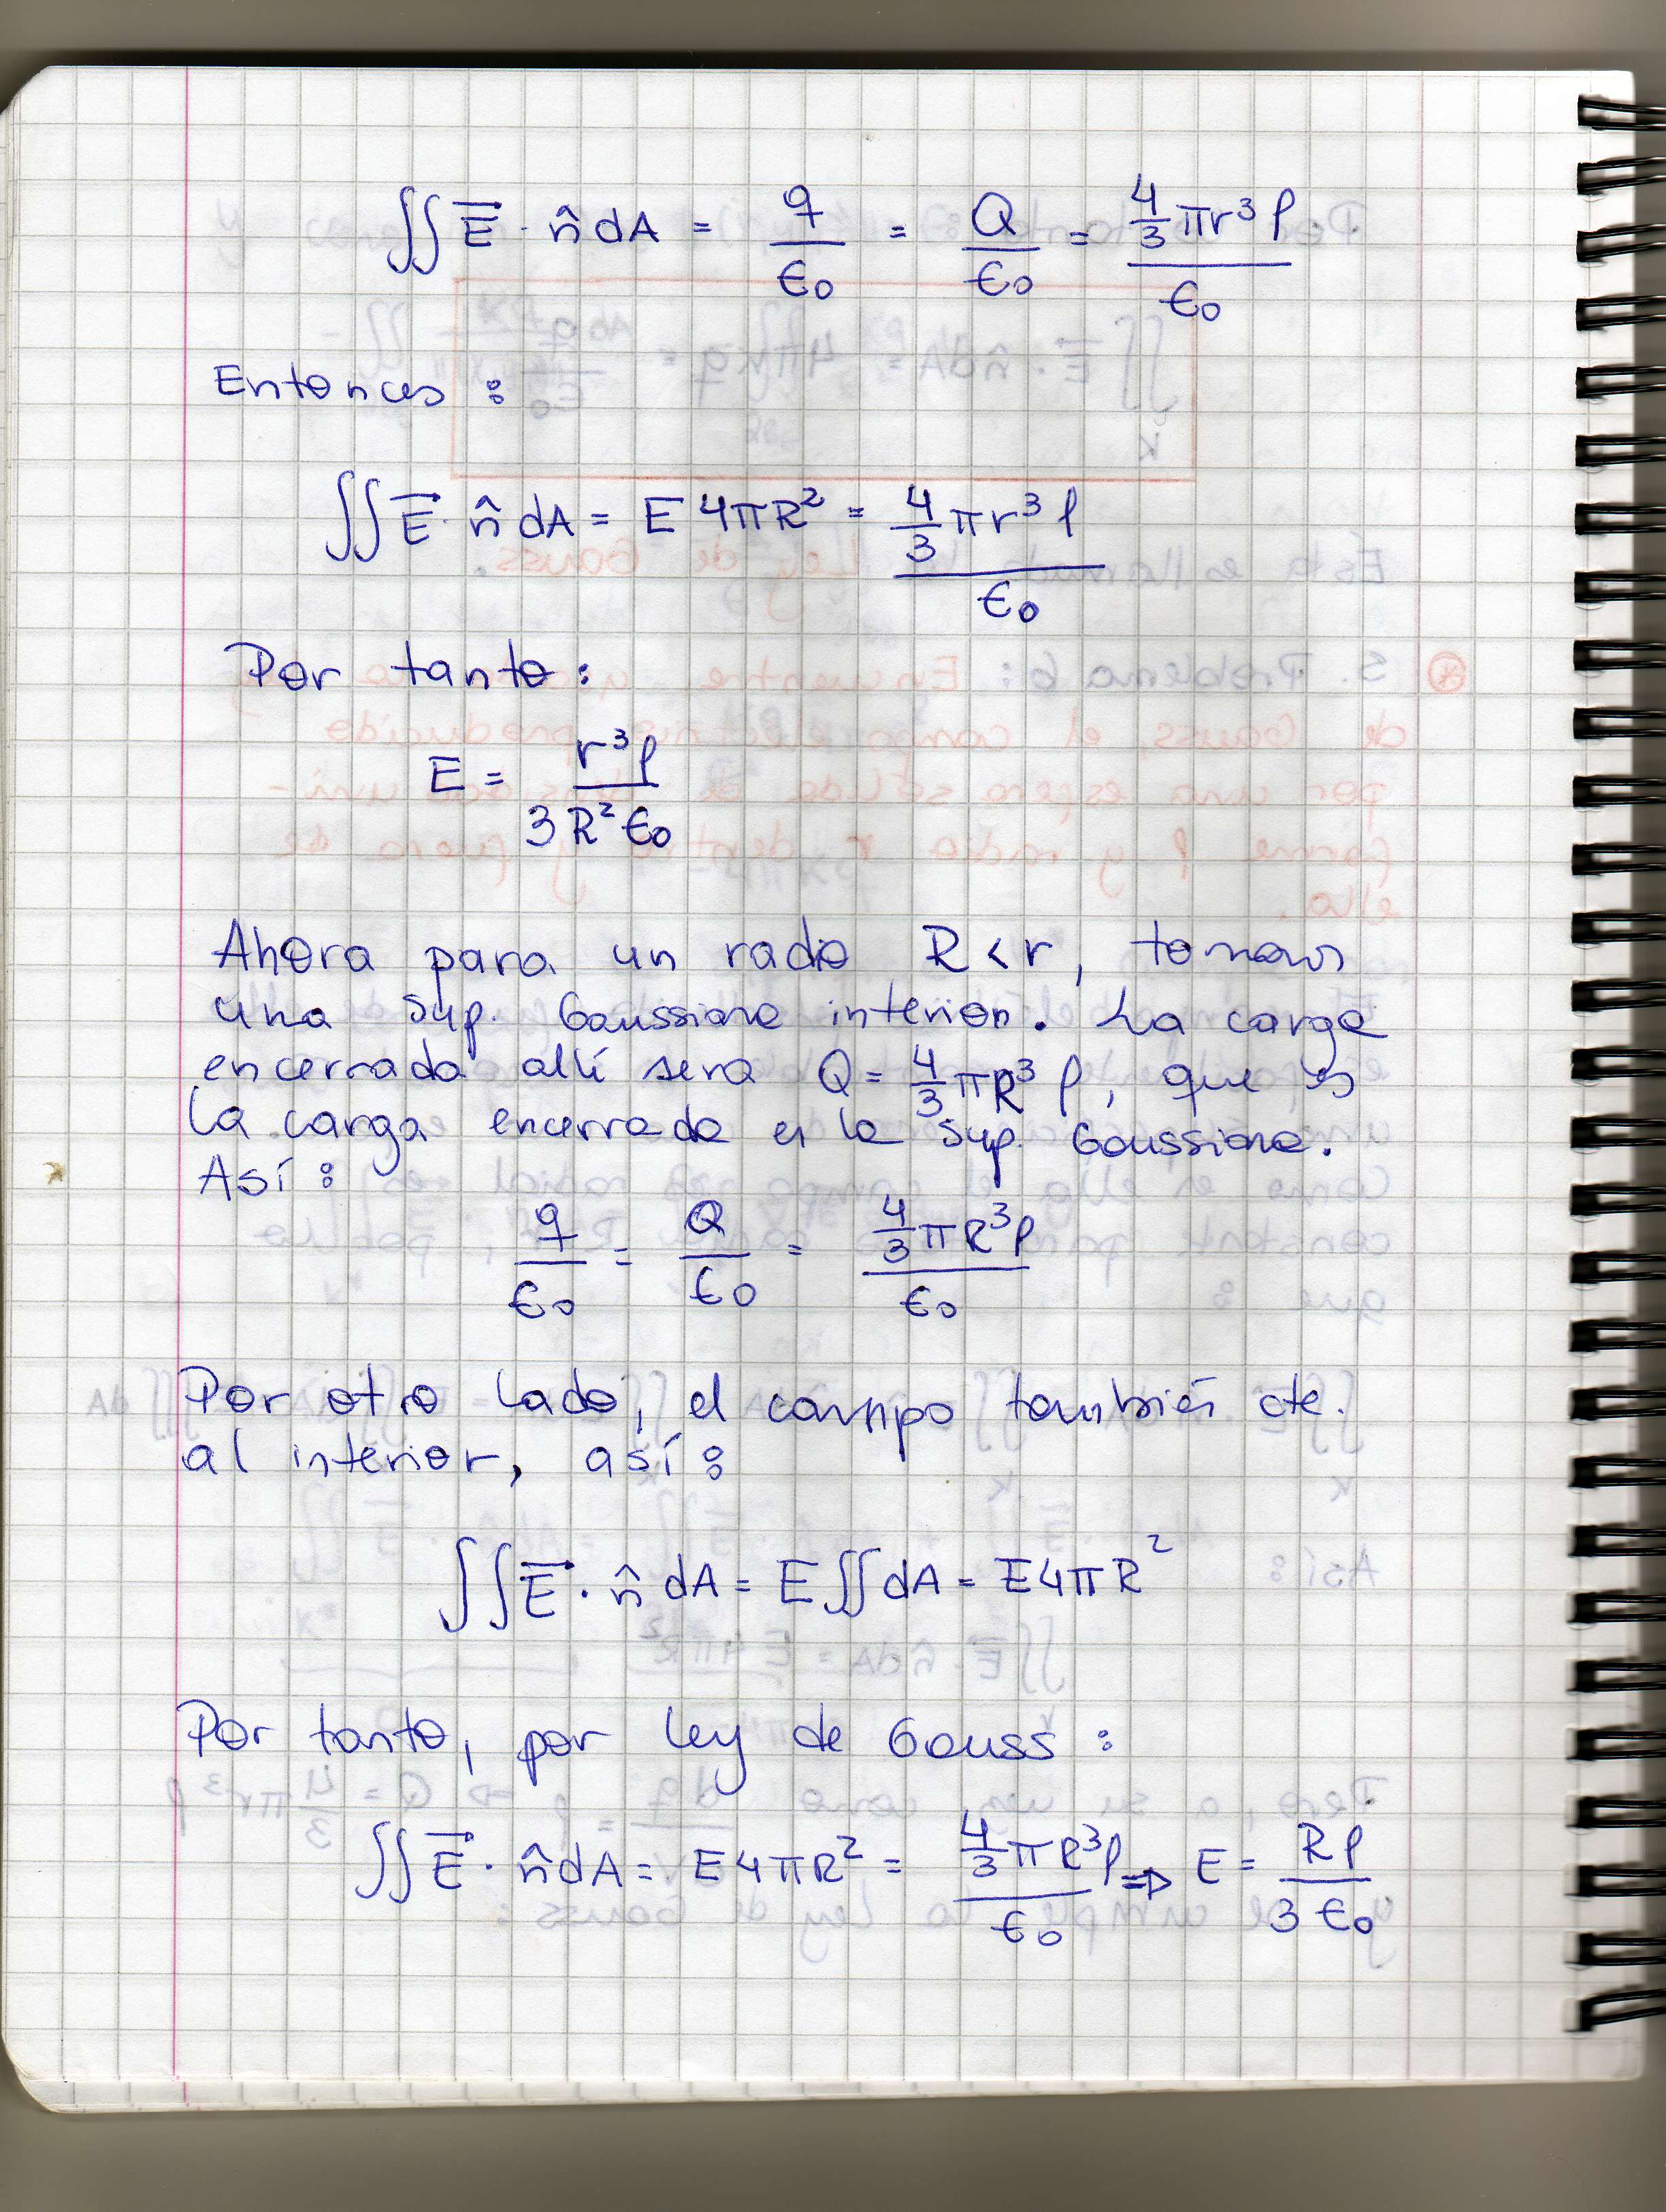 ∬ E⃗ · n̂ dA = q/ϵ₀ = Q/ϵ₀ = (4/3 πr³ρ)/ϵ₀
Entonces :
∬ E⃗ · n̂ dA = E 4πR² = (4/3 πr³ρ)/ϵ₀
Por tanto:
E = r³ρ/(3R²ϵ₀)
Ahora para un radio R < r, tomamos
una sup. Gaussiana interior. La carga
encerrada allí sera Q = 4/3 πR³ ρ, que es
la carga encerrada en la sup. Gaussiana.
Así :
q/ϵ₀ = Q/ϵ₀ = (4/3 πR³ρ)/ϵ₀
Por otro lado, el campo también cte.
al interior, así :
∬ E⃗ · n̂ dA = E ∬ dA = E4πR²
Por tanto, por ley de Gauss :
∬ E⃗ · n̂ dA = E4πR² = (4/3 πR³ρ)/ϵ₀ ⇒ E = Rρ/(3ϵ₀)